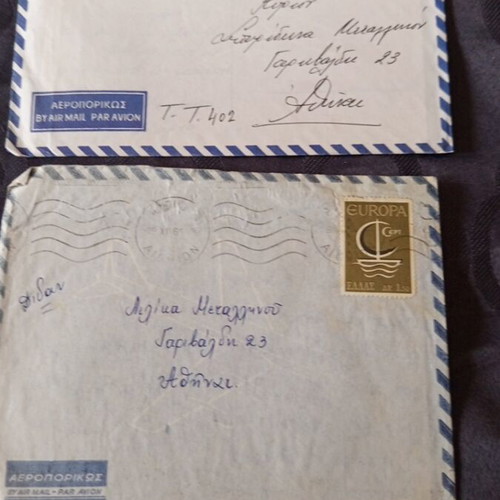 Κυρίον
Μεταλληνού
Γαριβάλδη 23
Αθήναι
ΑΕΡΟΠΟΡΙΚΩΣ
BY AIR MAIL PAR AVION
Τ-Τ. 402
EUROPA
CEPT
ΕΛΛΑΣ ΔΡ 1.50
ΑΙΓΙΟΝ
Δίδαν
Λιλίκα Μεταλληνού
Γαριβάλδη 23
Αθήναι
ΑΕΡΟΠΟΡΙΚΩΣ
BY AIR MAIL - PAR AVION